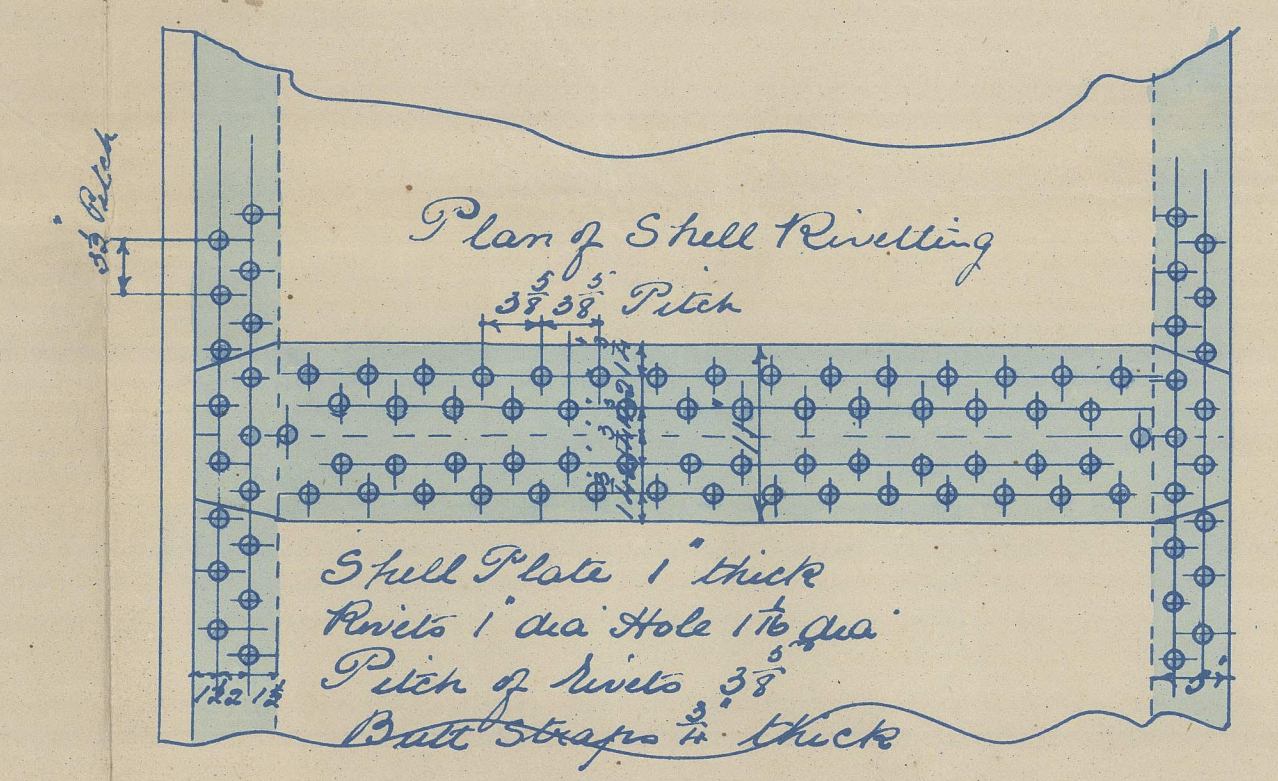 Plan of Shell Rivetting
3 5/8 3 5/8 Pitch
3 1/2" Pitch
11"
Shell Plate 1" thick
Rivets 1" dia Hole 1 1/16 dia
Pitch of rivets 3 5/8"
Butt Straps 3/4" thick
1 1/2 2 1 1/2
5"